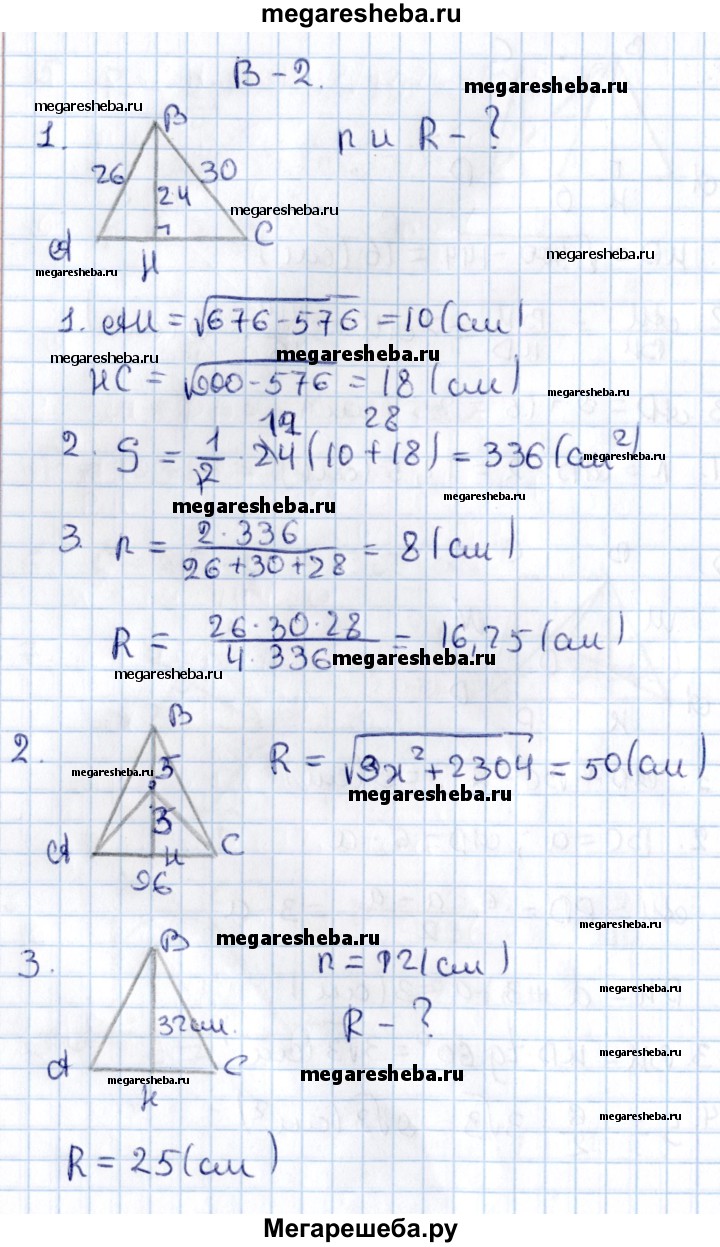 megaresheba.ru
В-2.
megaresheba.ru
megaresheba.ru
1.
B
r и R - ?
26
30
24
megaresheba.ru
A
H
C
megaresheba.ru
1. AH = √676-576 = 10 (см)
megaresheba.ru
HC = √900-576 = 18 (см)
megaresheba.ru
12 28
2. S = 1/2 · 24 (10+18) = 336 (см²)
megaresheba.ru
megaresheba.ru
megaresheba.ru
3. r = 2·336 / 26+30+28 = 8 (см)
R = 26·30·28 / 4·336 = 16,25 (см)
megaresheba.ru
megaresheba.ru
2.
B
R = √9x²+2304 = 50 (см)
megaresheba.ru
5
megaresheba.ru
3
A
H
C
96
megaresheba.ru
megaresheba.ru
3.
B
r = 12 (см)
megaresheba.ru
32см.
R - ?
megaresheba.ru
A
C
megaresheba.ru
megaresheba.ru
H
megaresheba.ru
R = 25 (см)
Мегарешеба.ру